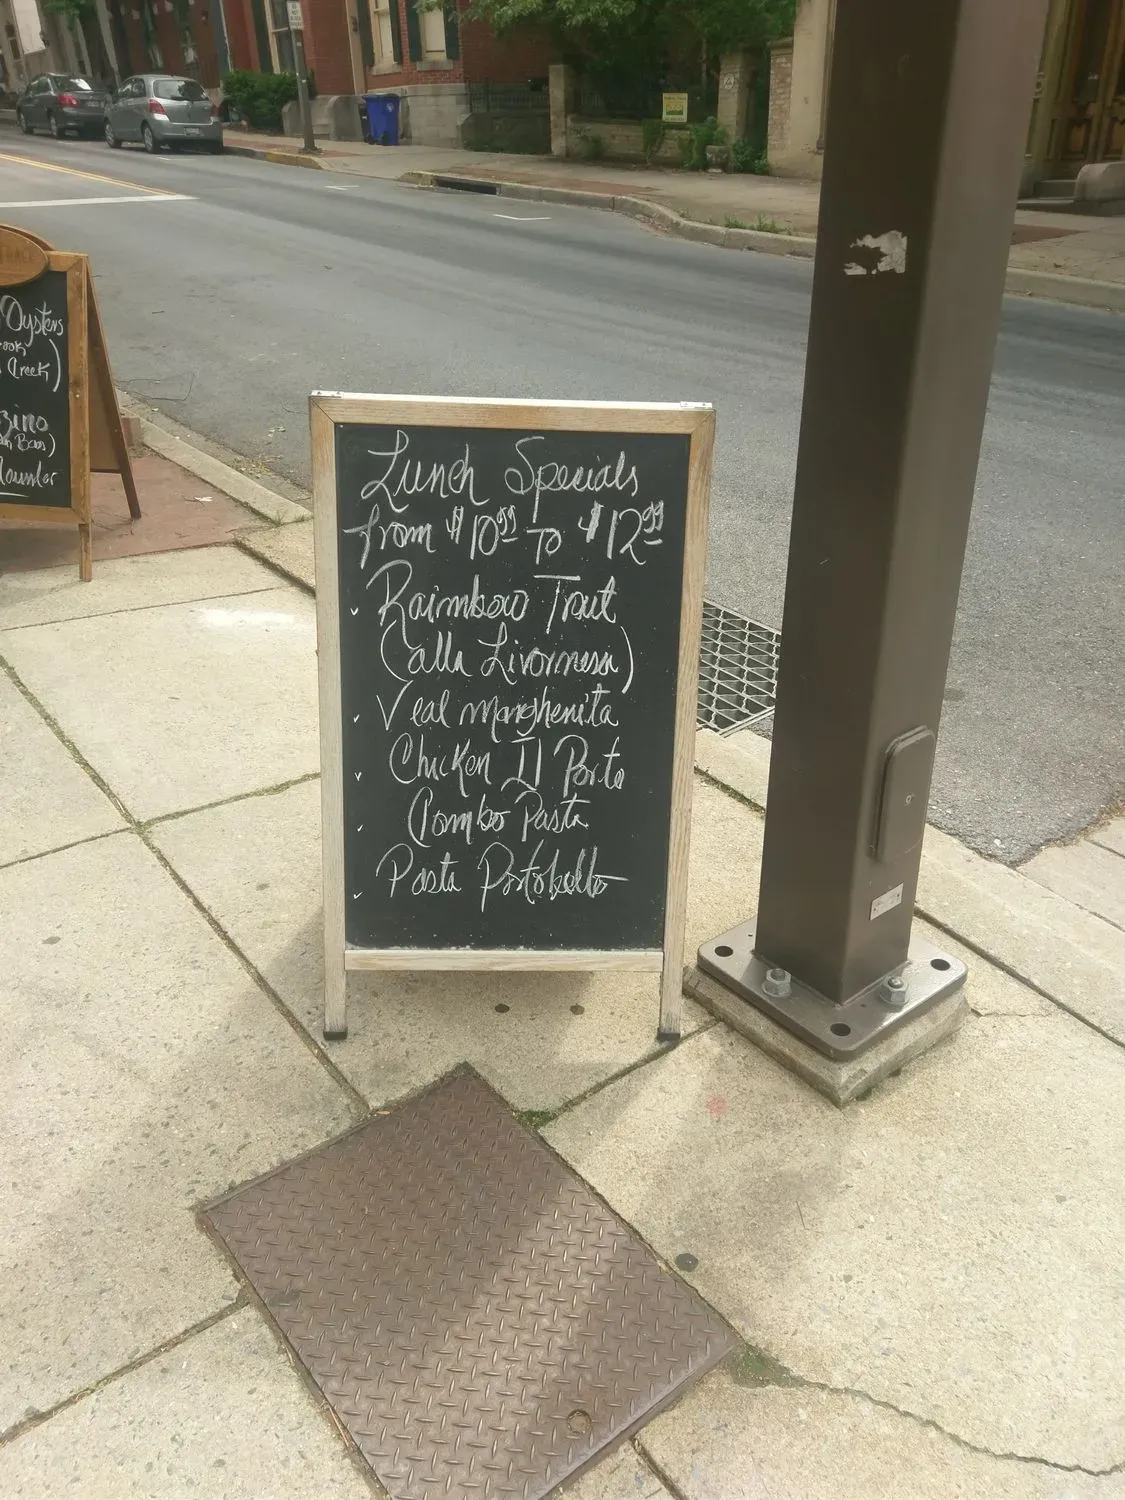 Oysters
Creek)
Lunch Specials
from $10.99 To $12.99
Raimbow Trout
(alla Livornessa)
Veal Marghenita
Chicken Il Porto
Combo Pasta
Pasta Portobello